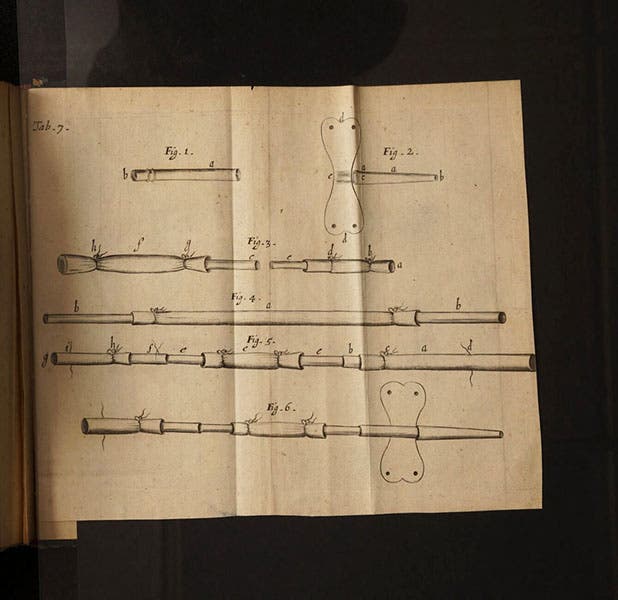 Tab. 7.
Fig. 1.
b a
Fig. 2.
d
e c a a b
d
Fig. 3.
h f g c e d b a
Fig. 4.
b a b
Fig. 5.
g h f e c e b c a d
Fig. 6.